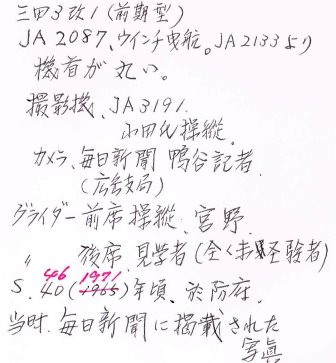 三田3改1(前期型)
JA2087、ウインチ曳航。JA2133より
機首が丸い。
撮影機、JA3191.
山田氏操縦。
カメラ、毎日新聞 鴨谷記者.
(広島支局)
グライダー前席操縦、宮野.
〃 後席、見学者(全く未経験者)
46 1971
S.40(1965)年頃、於防府.
当時、毎日新聞に掲載された
写真